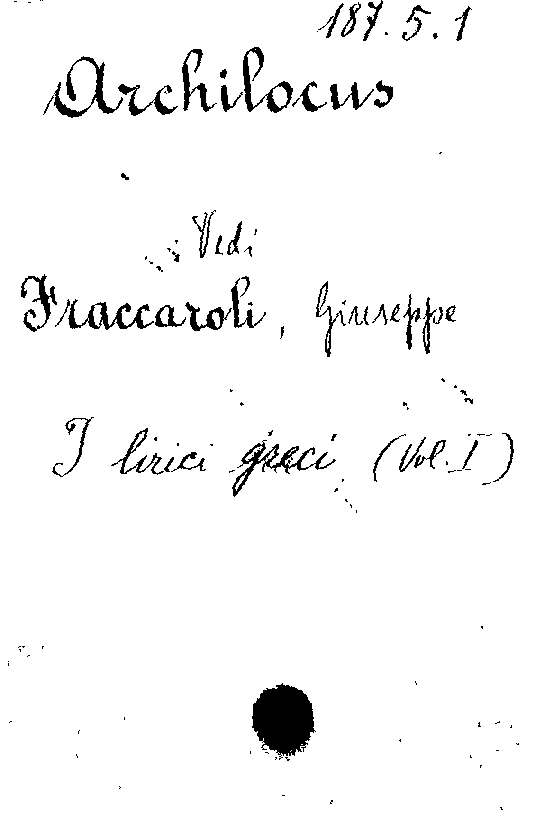 187.5.1
Archilocus
Vedi
Fraccaroli, Giuseppe
I lirici greci (Vol. I)